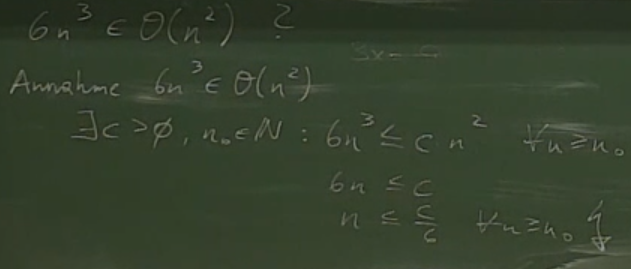 6n³ ∈ O(n²) ?
Annahme 6n³ ∈ O(n²)
∃c > 0, n₀ ∈ ℕ : 6n³ ≤ c n² ∀n ≥ n₀
6n ≤ c
n ≤ c/6 ∀n ≥ n₀ ↯